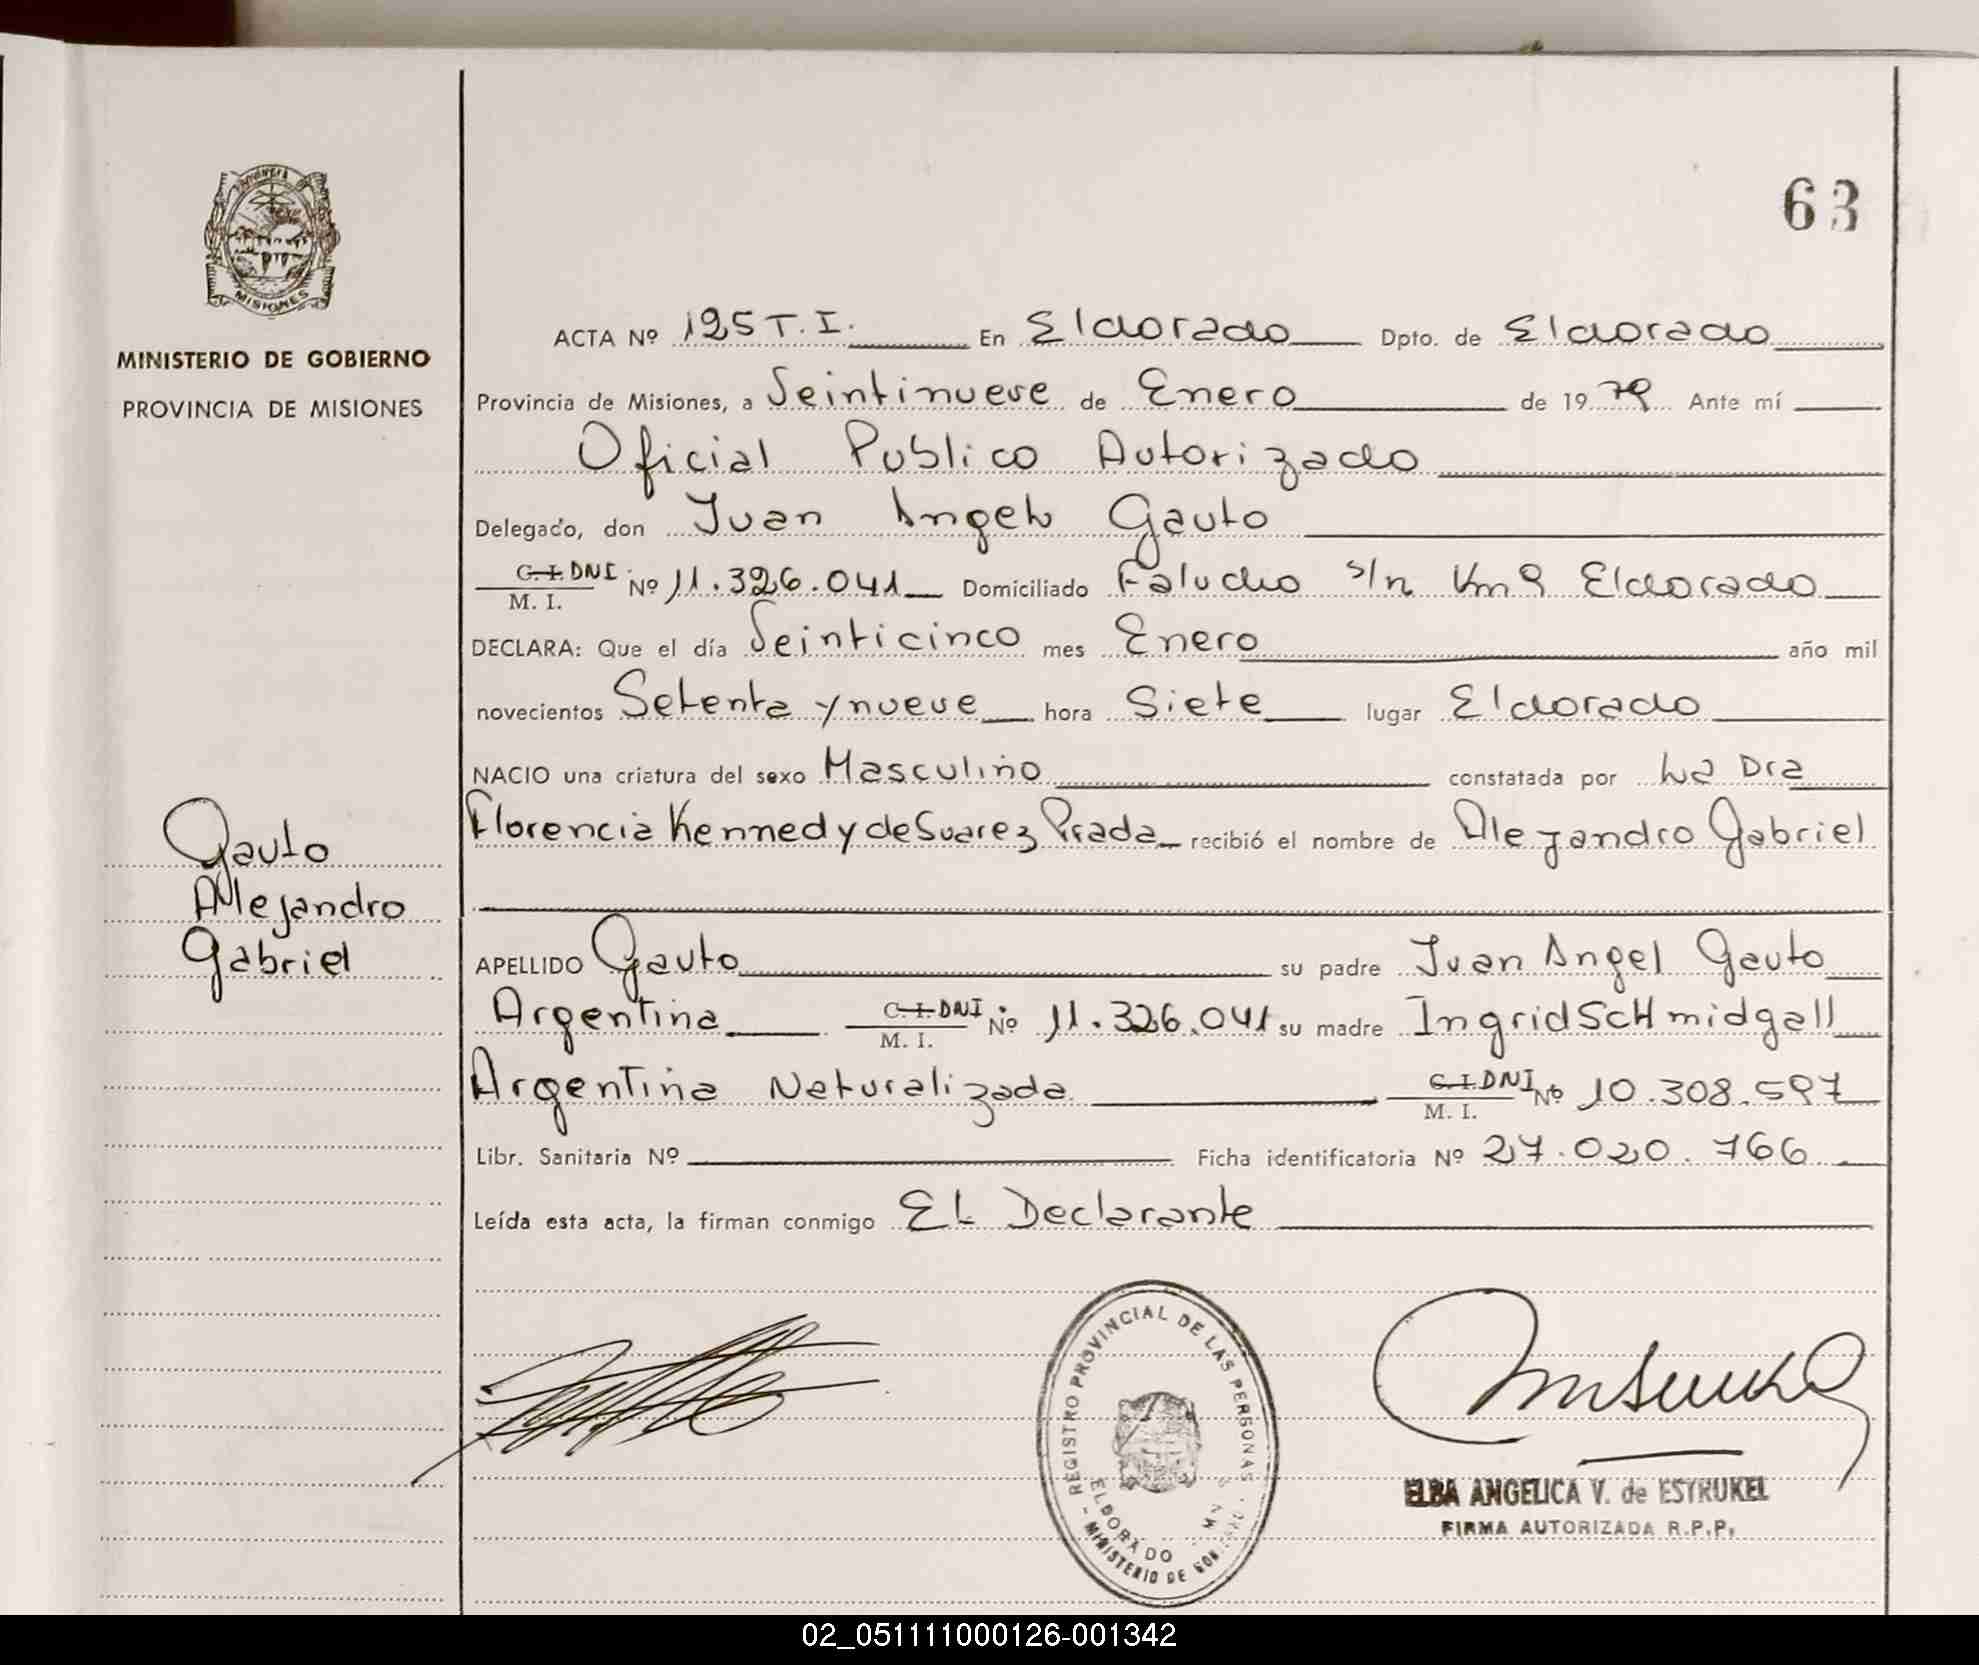 63
MISIONES
MINISTERIO DE GOBIERNO
PROVINCIA DE MISIONES
ACTA Nº 125 T.I. En Eldorado Dpto. de Eldorado
Provincia de Misiones, a Veintinueve de Enero de 1979 Ante mí
Oficial Publico Autorizado
Delegado, don Juan Angel Gauto
C.I. DNI M. I. Nº 11.326.041 Domiciliado Falucho s/n Km 9 Eldorado
DECLARA: Que el día Veinticinco mes Enero año mil
novecientos Setenta y nueve hora Siete lugar Eldorado
NACIO una criatura del sexo Masculino constatada por La Dra
Florencia Kennedy de Suarez Prada recibió el nombre de Alejandro Gabriel
Gauto
Alejandro
Gabriel
APELLIDO Gauto su padre Juan Angel Gauto
Argentina C.I. DNI M. I. Nº 11.326.041 su madre Ingrid SCHmidgall
Argentina Naturalizada C.I. DNI M. I. Nº 10.308.597
Libr. Sanitaria Nº Ficha identificatoria Nº 27.020.766
Leída esta acta, la firman conmigo El Declarante
REGISTRO PROVINCIAL DE LAS PERSONAS
ELDORADO
MINISTERIO DE
ELBA ANGELICA V. de ESYRUKEL
FIRMA AUTORIZADA R.P.P.
02_051111000126-001342